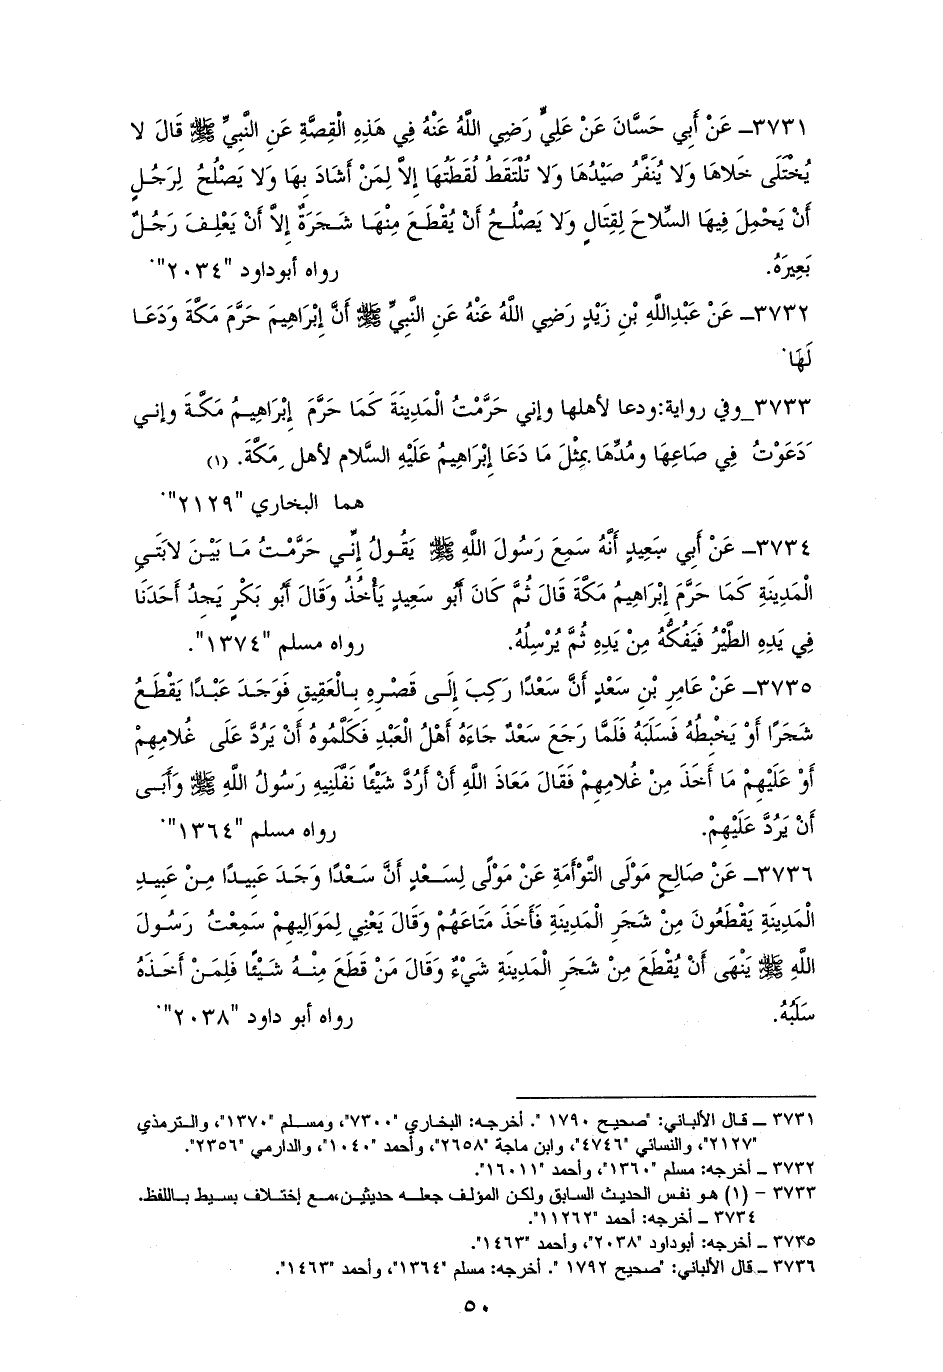 ٣٧٣١ــ عَنْ أَبِي حَسَّانَ عَنْ عَلِيٍّ رَضِي اللَّهُ عَنْهُ فِي هَذِهِ الْقِصَّةِ عَنِ النَّبِيِّ ﷺ قَالَ لا
يُخْتَلَى خَلاهَا وَلا يُنَفَّرُ صَيْدُهَا وَلا تُلْتَقَطُ لُقَطَتُهَا إِلاَّ لِمَنْ أَشَادَ بِهَا وَلا يَصْلُحُ لِرَجُلٍ
أَنْ يَحْمِلَ فِيهَا السِّلاحَ لِقِتَالٍ وَلا يَصْلُحُ أَنْ يُقْطَعَ مِنْهَا شَجَرَةٌ إِلاَّ أَنْ يَعْلِفَ رَجُلٌ
بَعِيرَهُ. رواه أبوداود "٢٠٣٤".
٣٧٣٢ــ عَنْ عَبْدِاللَّهِ بْنِ زَيْدٍ رَضِي اللَّهُ عَنْهُ عَنِ النَّبِيِّ ﷺ أَنَّ إِبْرَاهِيمَ حَرَّمَ مَكَّةَ وَدَعَا
لَهَا.
٣٧٣٣_وفي رواية:ودعا لأهلها وإني حَرَّمْتُ الْمَدِينَةَ كَمَا حَرَّمَ إِبْرَاهِيمُ مَكَّةَ وإني
دَعَوْتُ فِي صَاعِهَا ومُدِّهَا بِمِثْلَ مَا دَعَا إِبْرَاهِيمُ عَلَيْهِ السَّلام لأهل مَكَّةَ. (١)
هما البخاري "٢١٢٩".
٣٧٣٤ــ عَنْ أَبِي سَعِيدٍ أَنَّهُ سَمِعَ رَسُولَ اللَّهِ ﷺ يَقُولُ إِنِّي حَرَّمْتُ مَا بَيْنَ لابَتَيِ
الْمَدِينَةِ كَمَا حَرَّمَ إِبْرَاهِيمُ مَكَّةَ قَالَ ثُمَّ كَانَ أَبُو سَعِيدٍ يَأْخُذُ وَقَالَ أَبُو بَكْرٍ يَجِدُ أَحَدَنَا
فِي يَدِهِ الطَّيْرُ فَيَفُكُّهُ مِنْ يَدِهِ ثُمَّ يُرْسِلُهُ. رواه مسلم "١٣٧٤".
٣٧٣٥ــ عَنْ عَامِرِ بْنِ سَعْدٍ أَنَّ سَعْدًا رَكِبَ إِلَى قَصْرِهِ بِالْعَقِيقِ فَوَجَدَ عَبْدًا يَقْطَعُ
شَجَرًا أَوْ يَخْبِطُهُ فَسَلَبَهُ فَلَمَّا رَجَعَ سَعْدٌ جَاءَهُ أَهْلُ الْعَبْدِ فَكَلَّمُوهُ أَنْ يَرُدَّ عَلَى غُلامِهِمْ
أَوْ عَلَيْهِمْ مَا أَخَذَ مِنْ غُلامِهِمْ فَقَالَ مَعَاذَ اللَّهِ أَنْ أَرُدَّ شَيْئًا نَفَّلَنِيهِ رَسُولُ اللَّهِ ﷺ وَأَبَى
أَنْ يَرُدَّ عَلَيْهِمْ. رواه مسلم "١٣٦٤".
٣٧٣٦ــ عَنْ صَالِحٍ مَوْلَى التَّوْأَمَةِ عَنْ مَوْلًى لِسَعْدٍ أَنَّ سَعْدًا وَجَدَ عَبِيدًا مِنْ عَبِيدِ
الْمَدِينَةِ يَقْطَعُونَ مِنْ شَجَرِ الْمَدِينَةِ فَأَخَذَ مَتَاعَهُمْ وَقَالَ يَعْنِي لِمَوَالِيهِمْ سَمِعْتُ رَسُولَ
اللَّهِ ﷺ يَنْهَى أَنْ يُقْطَعَ مِنْ شَجَرِ الْمَدِينَةِ شَيْءٌ وَقَالَ مَنْ قَطَعَ مِنْهُ شَيْئًا فَلِمَنْ أَخَذَهُ
سَلَبُهُ. رواه أبو داود "٢٠٣٨".
٣٧٣١ ــ قال الألباني: "صحيح ١٧٩٠ ". أخرجه: البخاري "٧٣٠٠"، ومسلم "١٣٧٠"، والترمذي
"٢١٢٧"، والنسائي "٤٧٤٦"، وابن ماجة "٢٦٥٨"، وأحمد "١٠٤٠"، والدارمي "٢٣٥٦".
٣٧٣٢ ــ أخرجه: مسلم "١٣٦٠"، وأحمد "١٦٠١١".
٣٧٣٣ - (١) هو نفس الحديث السابق ولكن المؤلف جعله حديثين،مع إختلاف بسيط باللفظ.
٣٧٣٤ ــ أخرجه: أحمد "١١٢٦٢".
٣٧٣٥ ــ أخرجه: أبوداود "٢٠٣٨"، وأحمد "١٤٦٣".
٣٧٣٦ ــ قال الألباني: "صحيح ١٧٩٢ ". أخرجه: مسلم "١٣٦٤"، وأحمد "١٤٦٣".
٥٠